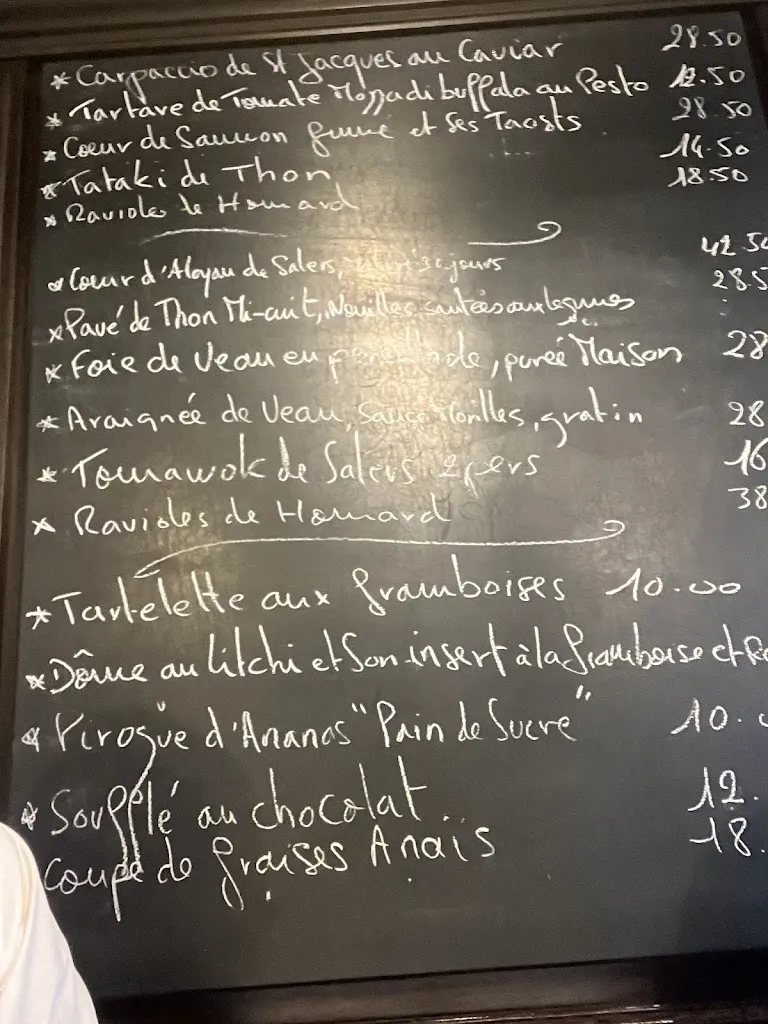 * Carpaccio de St Jacques au Caviar 28.50
* Tartare de Tomate Mozza di buffala au Pesto 12.50
* Coeur de Saumon fumé et Ses Taosts 28.50
* Tataki de Thon 14.50
* Ravioles de Homard 18.50
* Coeur d'Aloyau de Salers, 30 jours 42.5
* Pavé de Thon Mi-cuit, Nouilles sautées aux légumes 28.5
* Foie de Veau en, purée Maison 28
* Araignée de Veau, Sauce Morilles, gratin 28
* Tomawok de Salers 2 pers 16
* Ravioles de Homard 38
* Tartelette aux framboises 10.00
* Dôme au litchi et Son insert à la framboise et
* Pirogue d'Ananas "Pain de Sucre" 10.
* Soufflé au chocolat 12.
Coupe de fraises Anaïs 18.